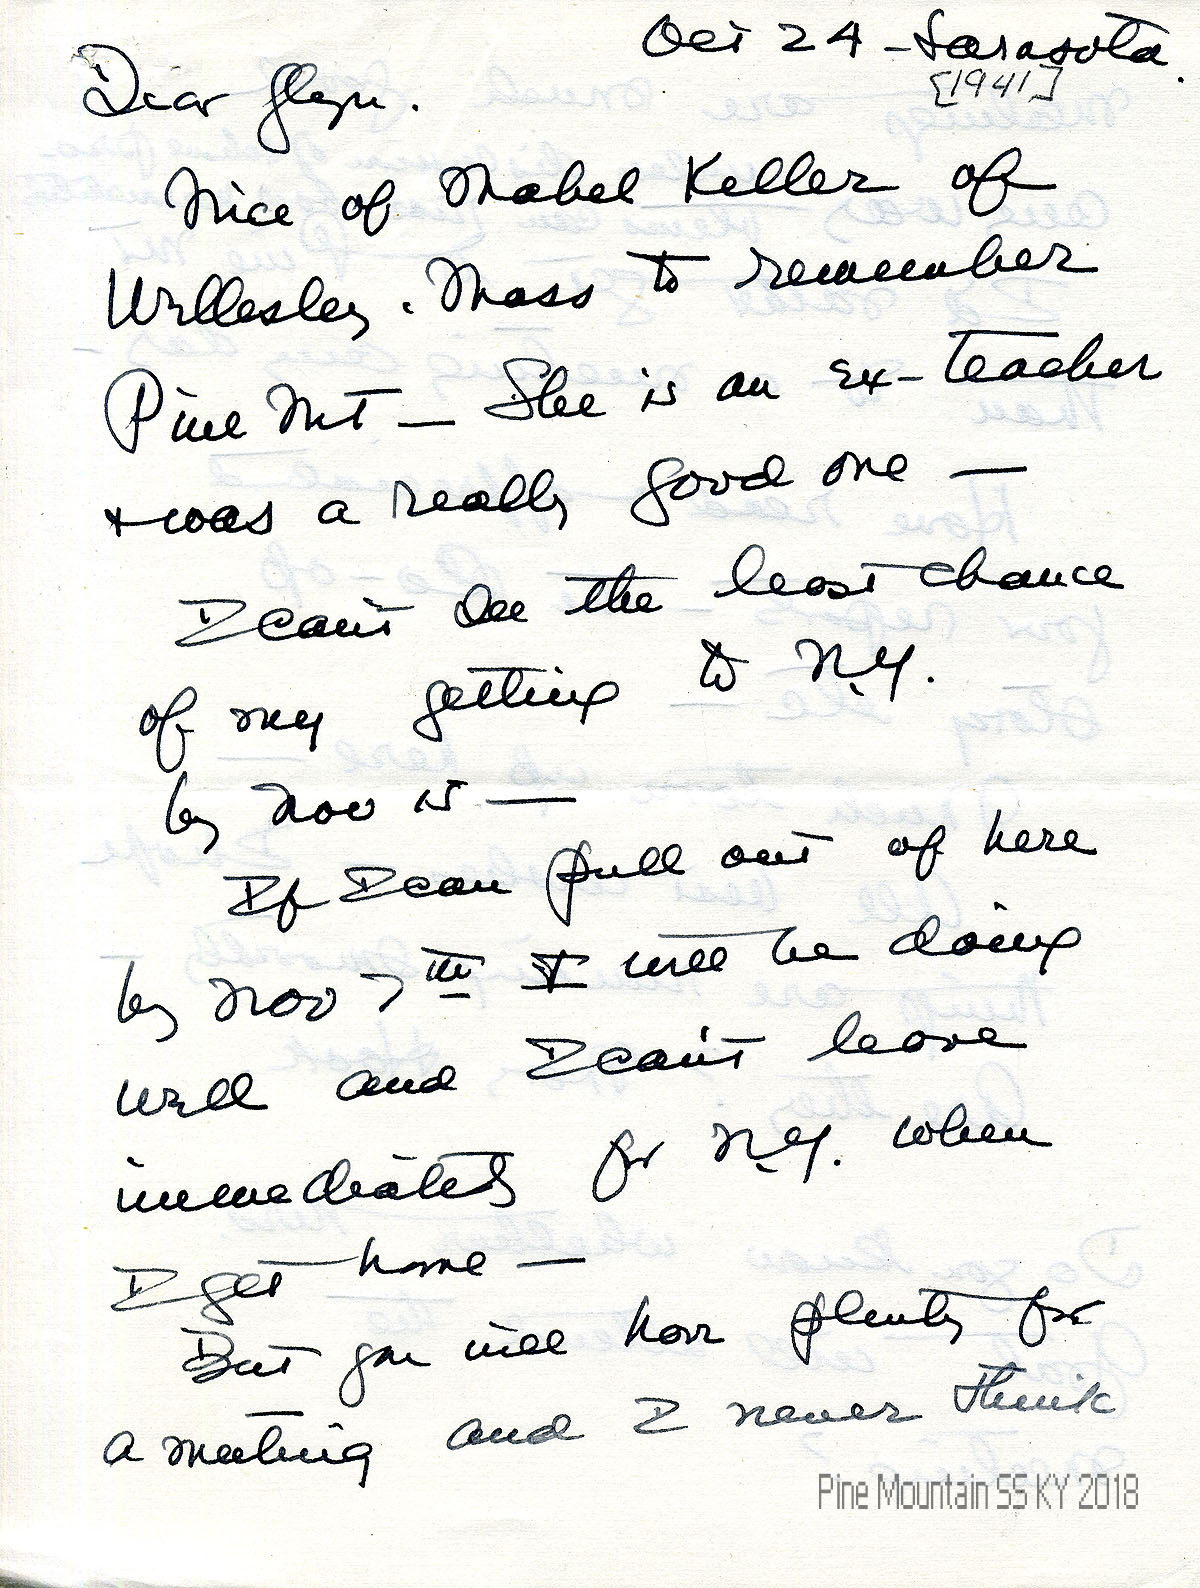 Oct 24 - Sarasota.
[1941]
Dear Glyn.
Nice of Mabel Keller of
Wellesley. Mass to remember
Pine Mt — She is an ex-teacher
+ was a really good one —
I can't see the least chance
of my getting to N.Y.
by Nov 15 —
If I can pull out of here
by Nov 7th I will be doing
well and I can't leave
immediately for N.Y. when
I get home —
But you will have plenty for
a meeting and I never think
Pine Mountain SS KY 2018